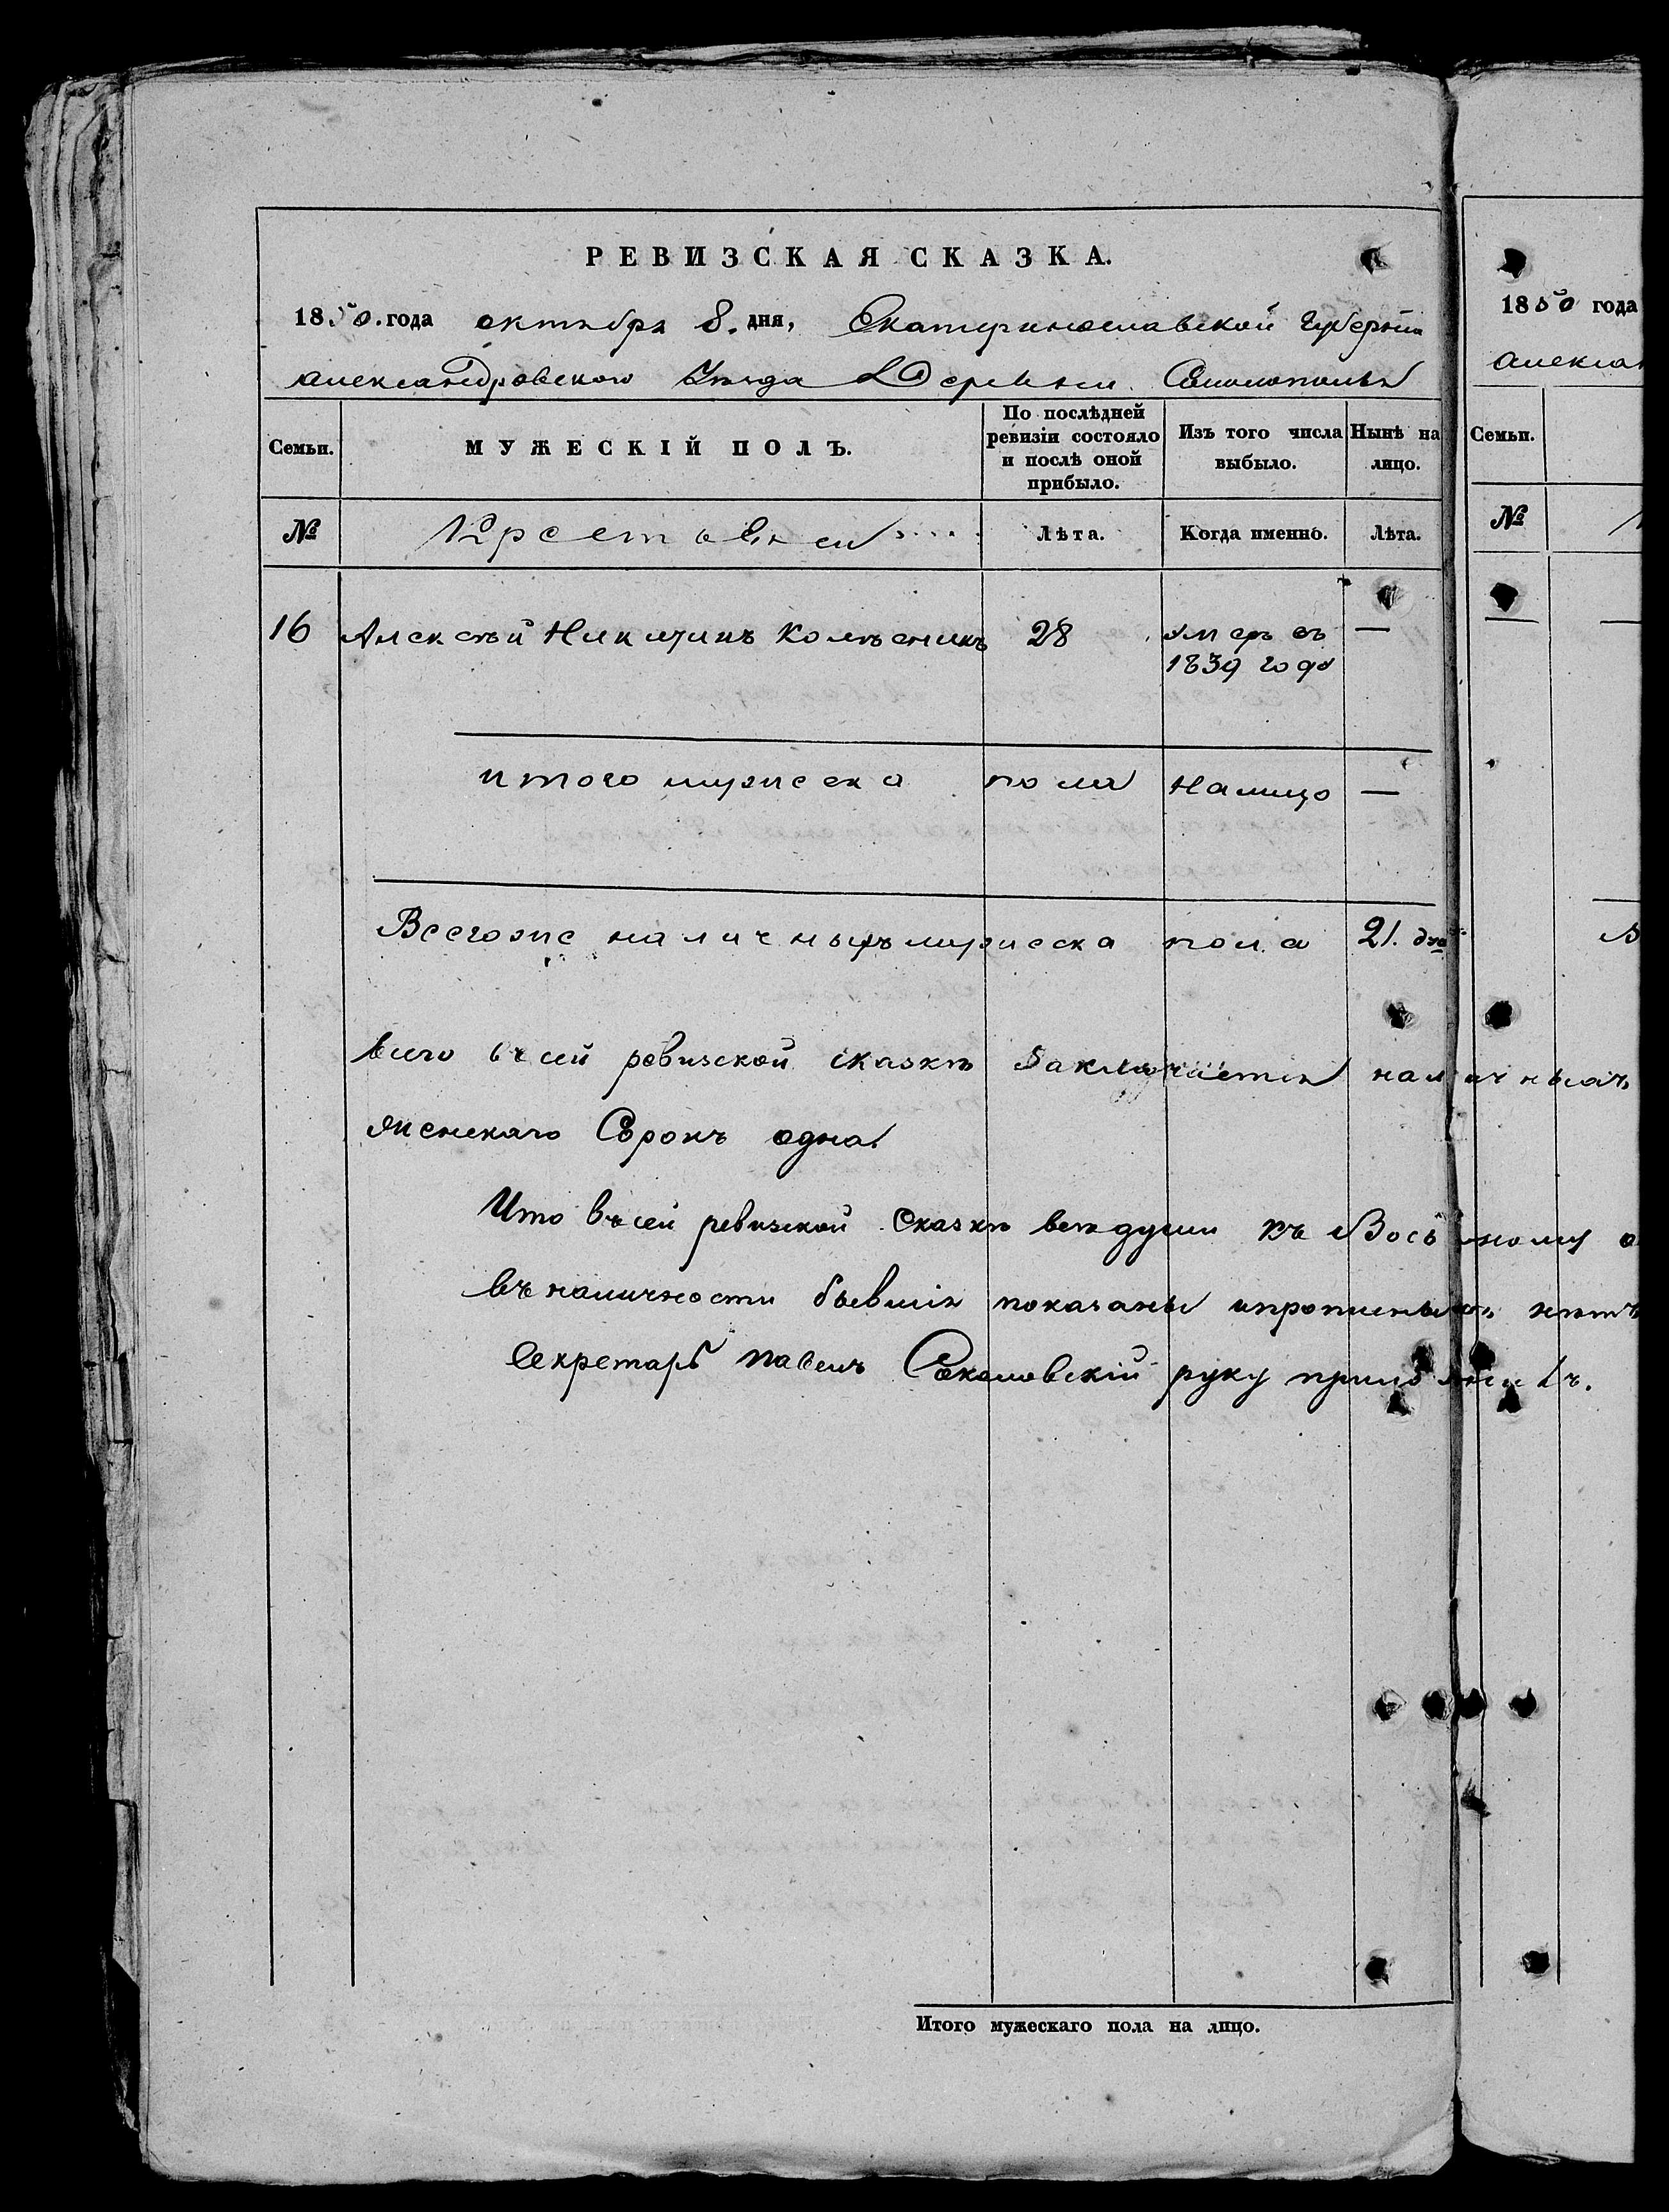 РЕВИЗСКАЯ СКАЗКА.
1850. года октября 8. дня, Екатеринославской Губерніи
александровского Уѣзда Деревни
Семьи.
МУЖЕСКІЙ ПОЛЪ.
По послѣдней ревизіи состояло и послѣ оной прибыло.
Изъ того числа выбыло.
Нынѣ на лицо.
№
Крестьяне
Лѣта.
Когда именно.
Лѣта.
16 Алексѣй Никитинъ 28 умеръ въ —
1839 году
итого мужеска пола налицо —
Всегоже наличныхъ мужеска пола 21. душ
всего въ сей ревизской сказкѣ заключается наличныхъ
женскаго Сорокъ одна.
Что въ сей ревизской Сказкѣ все души къ Восьмому
въ наличности бывшія показаны и прописныхъ нѣтъ
Секретарь Павелъ Соколовскій руку приложилъ.
Итого мужескаго пола на лицо.
1850 года
алексан
Семьи.
№